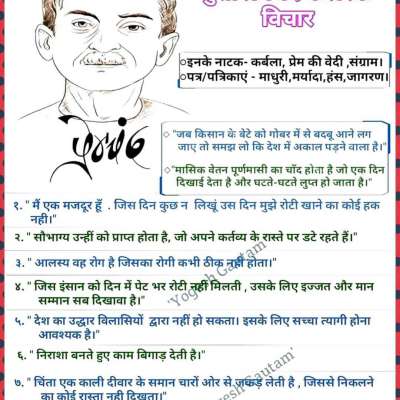 विचार
○इनके नाटक- कर्बला, प्रेम की वेदी ,संग्राम।
○पत्र/पत्रिकाएं - माधुरी,मर्यादा,हंस,जागरण।
प्रेमचंद
○"जब किसान के बेटे को गोबर में से बदबू आने लग
जाए तो समझ लो कि देश में अकाल पड़ने वाला है।"
○"मासिक वेतन पूर्णमासी का चाँद होता है जो एक दिन
दिखाई देता है और घटते-घटते लुप्त हो जाता है।"
१. " मैं एक मजदूर हूँ . जिस दिन कुछ न लिखूं उस दिन मुझे रोटी खाने का कोई हक
नही।"
२. " सौभाग्य उन्हीं को प्राप्त होता है, जो अपने कर्तव्य के रास्ते पर डटे रहते हैं।"
३. " आलस्य वह रोग है जिसका रोगी कभी ठीक नहीं होता।"
४. " जिस इंसान को दिन में पेट भर रोटी नहीं मिलती , उसके लिए इज्जत और मान
सम्मान सब दिखावा है।"
५. " देश का उद्धार विलासियों द्वारा नहीं हो सकता। इसके लिए सच्चा त्यागी होना
आवश्यक है।"
६. " निराशा बनते हुए काम बिगाड़ देती है।"
७. " चिंता एक काली दीवार के समान चारों ओर से जकड़ लेती है , जिससे निकलने
का कोई रास्ता नही दिखता।"
'Yogesh Gautam'
Yogesh Gautam'